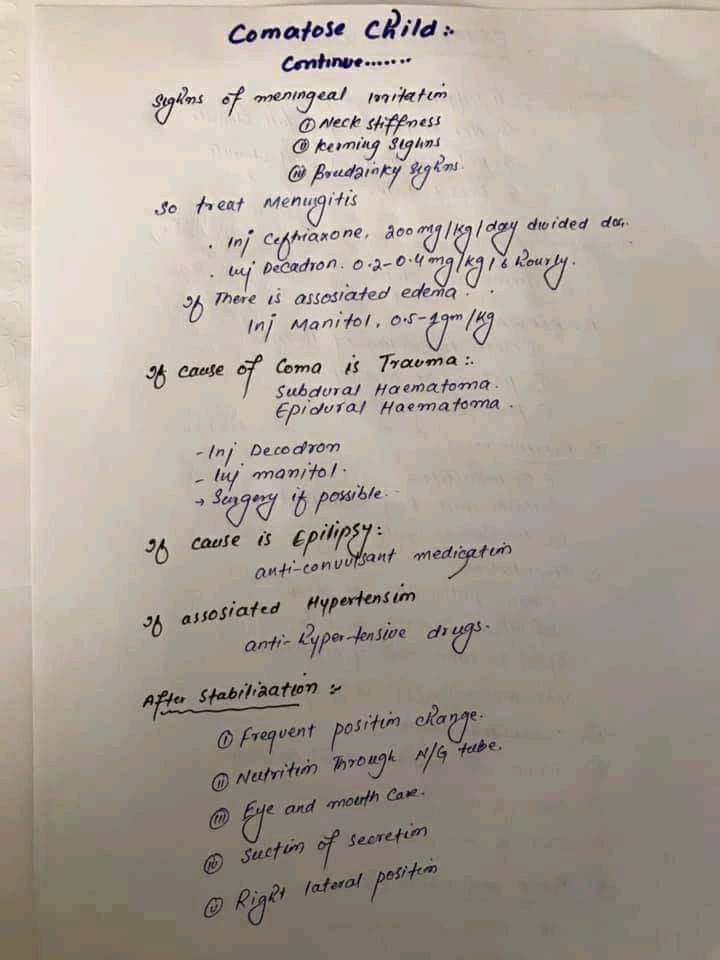 Comatose Child:-
Continue.......
Sighns of meningeal irritation
(i) Neck stiffness
(ii) Kerning Sighns
(iii) Brudzinky Sighns.
So treat Meningitis
. Inj Ceftriaxone, 200mg/kg/day divided dos.
. Inj Decadron. 0.2-0.4mg/kg/6 hourly.
If There is assosiated edema.
Inj Manitol, 0.5-1gm/kg
If cause of Coma is Trauma:-
Subdural Haematoma.
Epidural Haematoma.
- Inj Decodron
- Inj manitol.
→ Surgery if possible.
If cause is Epilipsy:
anti-convulsant medication
If assosiated Hypertension
anti-hyper-tensive drugs.
After Stabilization :-
(i) Frequent position change.
(ii) Nutrition Through N/G tube.
(iii) Eye and mouth Care.
(iv) Suction of secretion
(v) Right lateral position